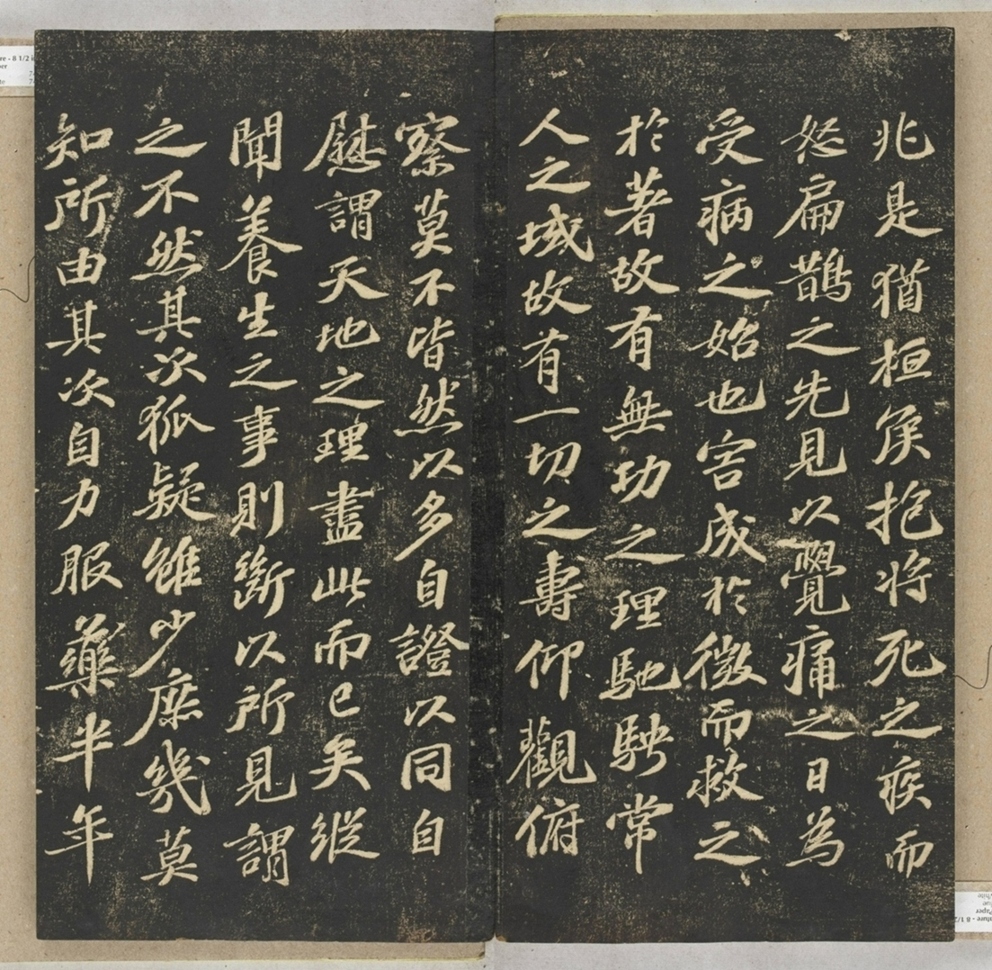 兆是猶桓侯抱将死之疾而
怒扁鵲之先見以覺痛之日為
受病之始也害成於微而救之
於著故有無功之理馳騁常
人之域故有一切之壽仰觀俯
察莫不皆然以多自證以同自
慰謂天地之理盡此而已矣縱
聞養生之事則斷以所見謂
之不然其次狐疑雖少庶幾莫
知所由其次自力服藥半年